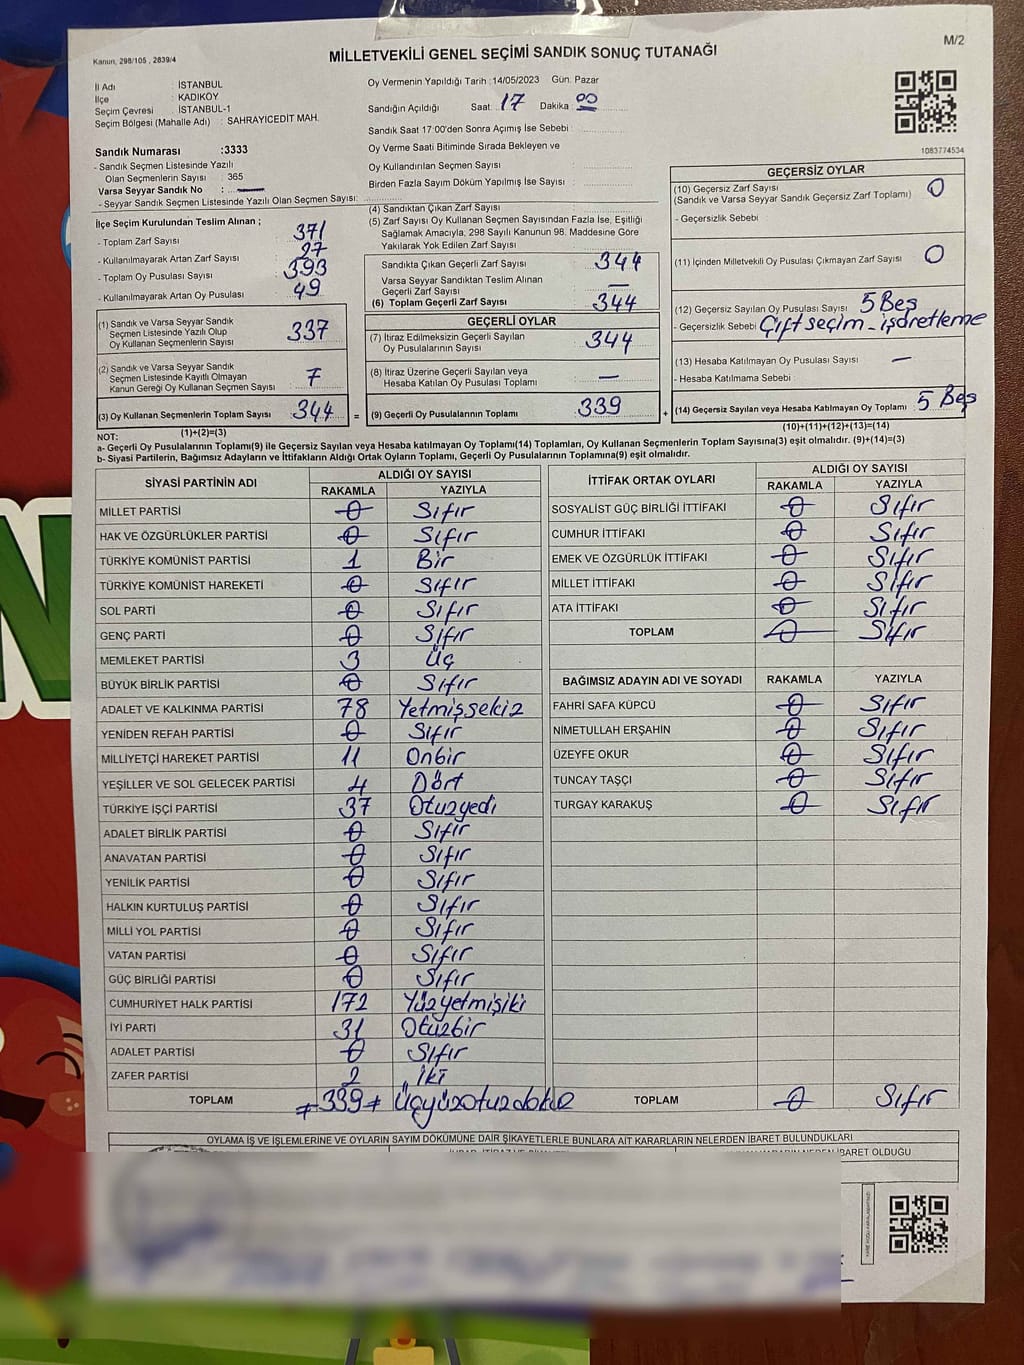 M/2
Kanun, 298/105 , 2839/4
MİLLETVEKİLİ GENEL SEÇİMİ SANDIK SONUÇ TUTANAĞI
İl Adı : İSTANBUL
İlçe : KADIKÖY
Seçim Çevresi : İSTANBUL-1
Seçim Bölgesi (Mahalle Adı) : SAHRAYICEDİT MAH.
Sandık Numarası :3333
- Sandık Seçmen Listesinde Yazılı
Olan Seçmenlerin Sayısı : 365
Varsa Seyyar Sandık No : —
- Seyyar Sandık Seçmen Listesinde Yazılı Olan Seçmen Sayısı:
Oy Vermenin Yapıldığı Tarih :14/05/2023 Gün. Pazar
Sandığın Açıldığı Saat 17 Dakika 00
Sandık Saat 17:00'den Sonra Açımış İse Sebebi :
Oy Verme Saati Bitiminde Sırada Bekleyen ve
Oy Kullandırılan Seçmen Sayısı :
Birden Fazla Sayım Döküm Yapılmış İse Sayısı :
1083774534
İlçe Seçim Kurulundan Teslim Alınan ;
- Toplam Zarf Sayısı : 371
- Kullanılmayarak Artan Zarf Sayısı : 27
- Toplam Oy Pusulası Sayısı : 393
- Kullanılmayarak Artan Oy Pusulası : 49
(1) Sandık ve Varsa Seyyar Sandık
Seçmen Listesinde Yazılı Olup
Oy Kullanan Seçmenlerin Sayısı 337
(2) Sandık ve Varsa Seyyar Sandık
Seçmen Listesinde Kayıtlı Olmayan
Kanun Gereği Oy Kullanan Seçmen Sayısı 7
(3) Oy Kullanan Seçmenlerin Toplam Sayısı 344 =
(1)+(2)=(3)
(4) Sandıktan Çıkan Zarf Sayısı :
(5) Zarf Sayısı Oy Kullanan Seçmen Sayısından Fazla İse, Eşitliği
Sağlamak Amacıyla, 298 Sayılı Kanunun 98. Maddesine Göre
Yakılarak Yok Edilen Zarf Sayısı :
Sandıkta Çıkan Geçerli Zarf Sayısı 344
Varsa Seyyar Sandıktan Teslim Alınan
Geçerli Zarf Sayısı —
(6) Toplam Geçerli Zarf Sayısı 344
GEÇERLİ OYLAR
(7) İtiraz Edilmeksizin Geçerli Sayılan
Oy Pusulalarının Sayısı 344
(8) İtiraz Üzerine Geçerli Sayılan veya
Hesaba Katılan Oy Pusulası Toplamı —
(9) Geçerli Oy Pusulalarının Toplamı 339 +
GEÇERSİZ OYLAR
(10) Geçersiz Zarf Sayısı : 0
(Sandık ve Varsa Seyyar Sandık Geçersiz Zarf Toplamı)
- Geçersizlik Sebebi :
(11) İçinden Milletvekili Oy Pusulası Çıkmayan Zarf Sayısı : 0
(12) Geçersiz Sayılan Oy Pusulası Sayısı : 5 Beş
- Geçersizlik Sebebi : Çift seçim - işaretleme
(13) Hesaba Katılmayan Oy Pusulası Sayısı : —
- Hesaba Katılmama Sebebi :
(14) Geçersiz Sayılan veya Hesaba Katılmayan Oy Toplamı : 5 Beş
(10)+(11)+(12)+(13)=(14)
NOT:
a- Geçerli Oy Pusulalarının Toplamı(9) ile Geçersiz Sayılan veya Hesaba katılmayan Oy Toplamı(14) Toplamları, Oy Kullanan Seçmenlerin Toplam Sayısına(3) eşit olmalıdır. (9)+(14)=(3)
b- Siyasi Partilerin, Bağımsız Adayların ve İttifakların Aldığı Ortak Oyların Toplamı, Geçerli Oy Pusulalarının Toplamına(9) eşit olmalıdır.
SİYASİ PARTİNİN ADI ALDIĞI OY SAYISI
RAKAMLA YAZIYLA
MİLLET PARTİSİ 0 Sıfır
HAK VE ÖZGÜRLÜKLER PARTİSİ 0 Sıfır
TÜRKİYE KOMÜNİST PARTİSİ 1 Bir
TÜRKİYE KOMÜNİST HAREKETİ 0 Sıfır
SOL PARTİ 0 Sıfır
GENÇ PARTİ 0 Sıfır
MEMLEKET PARTİSİ 3 Üç
BÜYÜK BİRLİK PARTİSİ 0 Sıfır
ADALET VE KALKINMA PARTİSİ 78 Yetmişsekiz
YENİDEN REFAH PARTİSİ 0 Sıfır
MİLLİYETÇİ HAREKET PARTİSİ 11 Onbir
YEŞİLLER VE SOL GELECEK PARTİSİ 4 Dört
TÜRKİYE İŞÇİ PARTİSİ 37 Otuzyedi
ADALET BİRLİK PARTİSİ 0 Sıfır
ANAVATAN PARTİSİ 0 Sıfır
YENİLİK PARTİSİ 0 Sıfır
HALKIN KURTULUŞ PARTİSİ 0 Sıfır
MİLLİ YOL PARTİSİ 0 Sıfır
VATAN PARTİSİ 0 Sıfır
GÜÇ BİRLİĞİ PARTİSİ 0 Sıfır
CUMHURİYET HALK PARTİSİ 172 Yüzyetmişiki
İYİ PARTİ 31 Otuzbir
ADALET PARTİSİ 0 Sıfır
ZAFER PARTİSİ 2 İki
TOPLAM ≠339≠ Üçyüzotuzdokuz
İTTİFAK ORTAK OYLARI ALDIĞI OY SAYISI
RAKAMLA YAZIYLA
SOSYALİST GÜÇ BİRLİĞİ İTTİFAKI 0 Sıfır
CUMHUR İTTİFAKI 0 Sıfır
EMEK VE ÖZGÜRLÜK İTTİFAKI 0 Sıfır
MİLLET İTTİFAKI 0 Sıfır
ATA İTTİFAKI 0 Sıfır
TOPLAM 0 Sıfır
BAĞIMSIZ ADAYIN ADI VE SOYADI RAKAMLA YAZIYLA
FAHRİ SAFA KÜPCÜ 0 Sıfır
NİMETULLAH ERŞAHİN 0 Sıfır
ÜZEYFE OKUR 0 Sıfır
TUNCAY TAŞÇI 0 Sıfır
TURGAY KARAKUŞ 0 Sıfır
TOPLAM 0 Sıfır
OYLAMA İŞ VE İŞLEMLERİNE VE OYLARIN SAYIM DÖKÜMÜNE DAİR ŞİKAYETLERLE BUNLARA AİT KARARLARIN NELERDEN İBARET BULUNDUKLARI
İBARET OLDUĞU